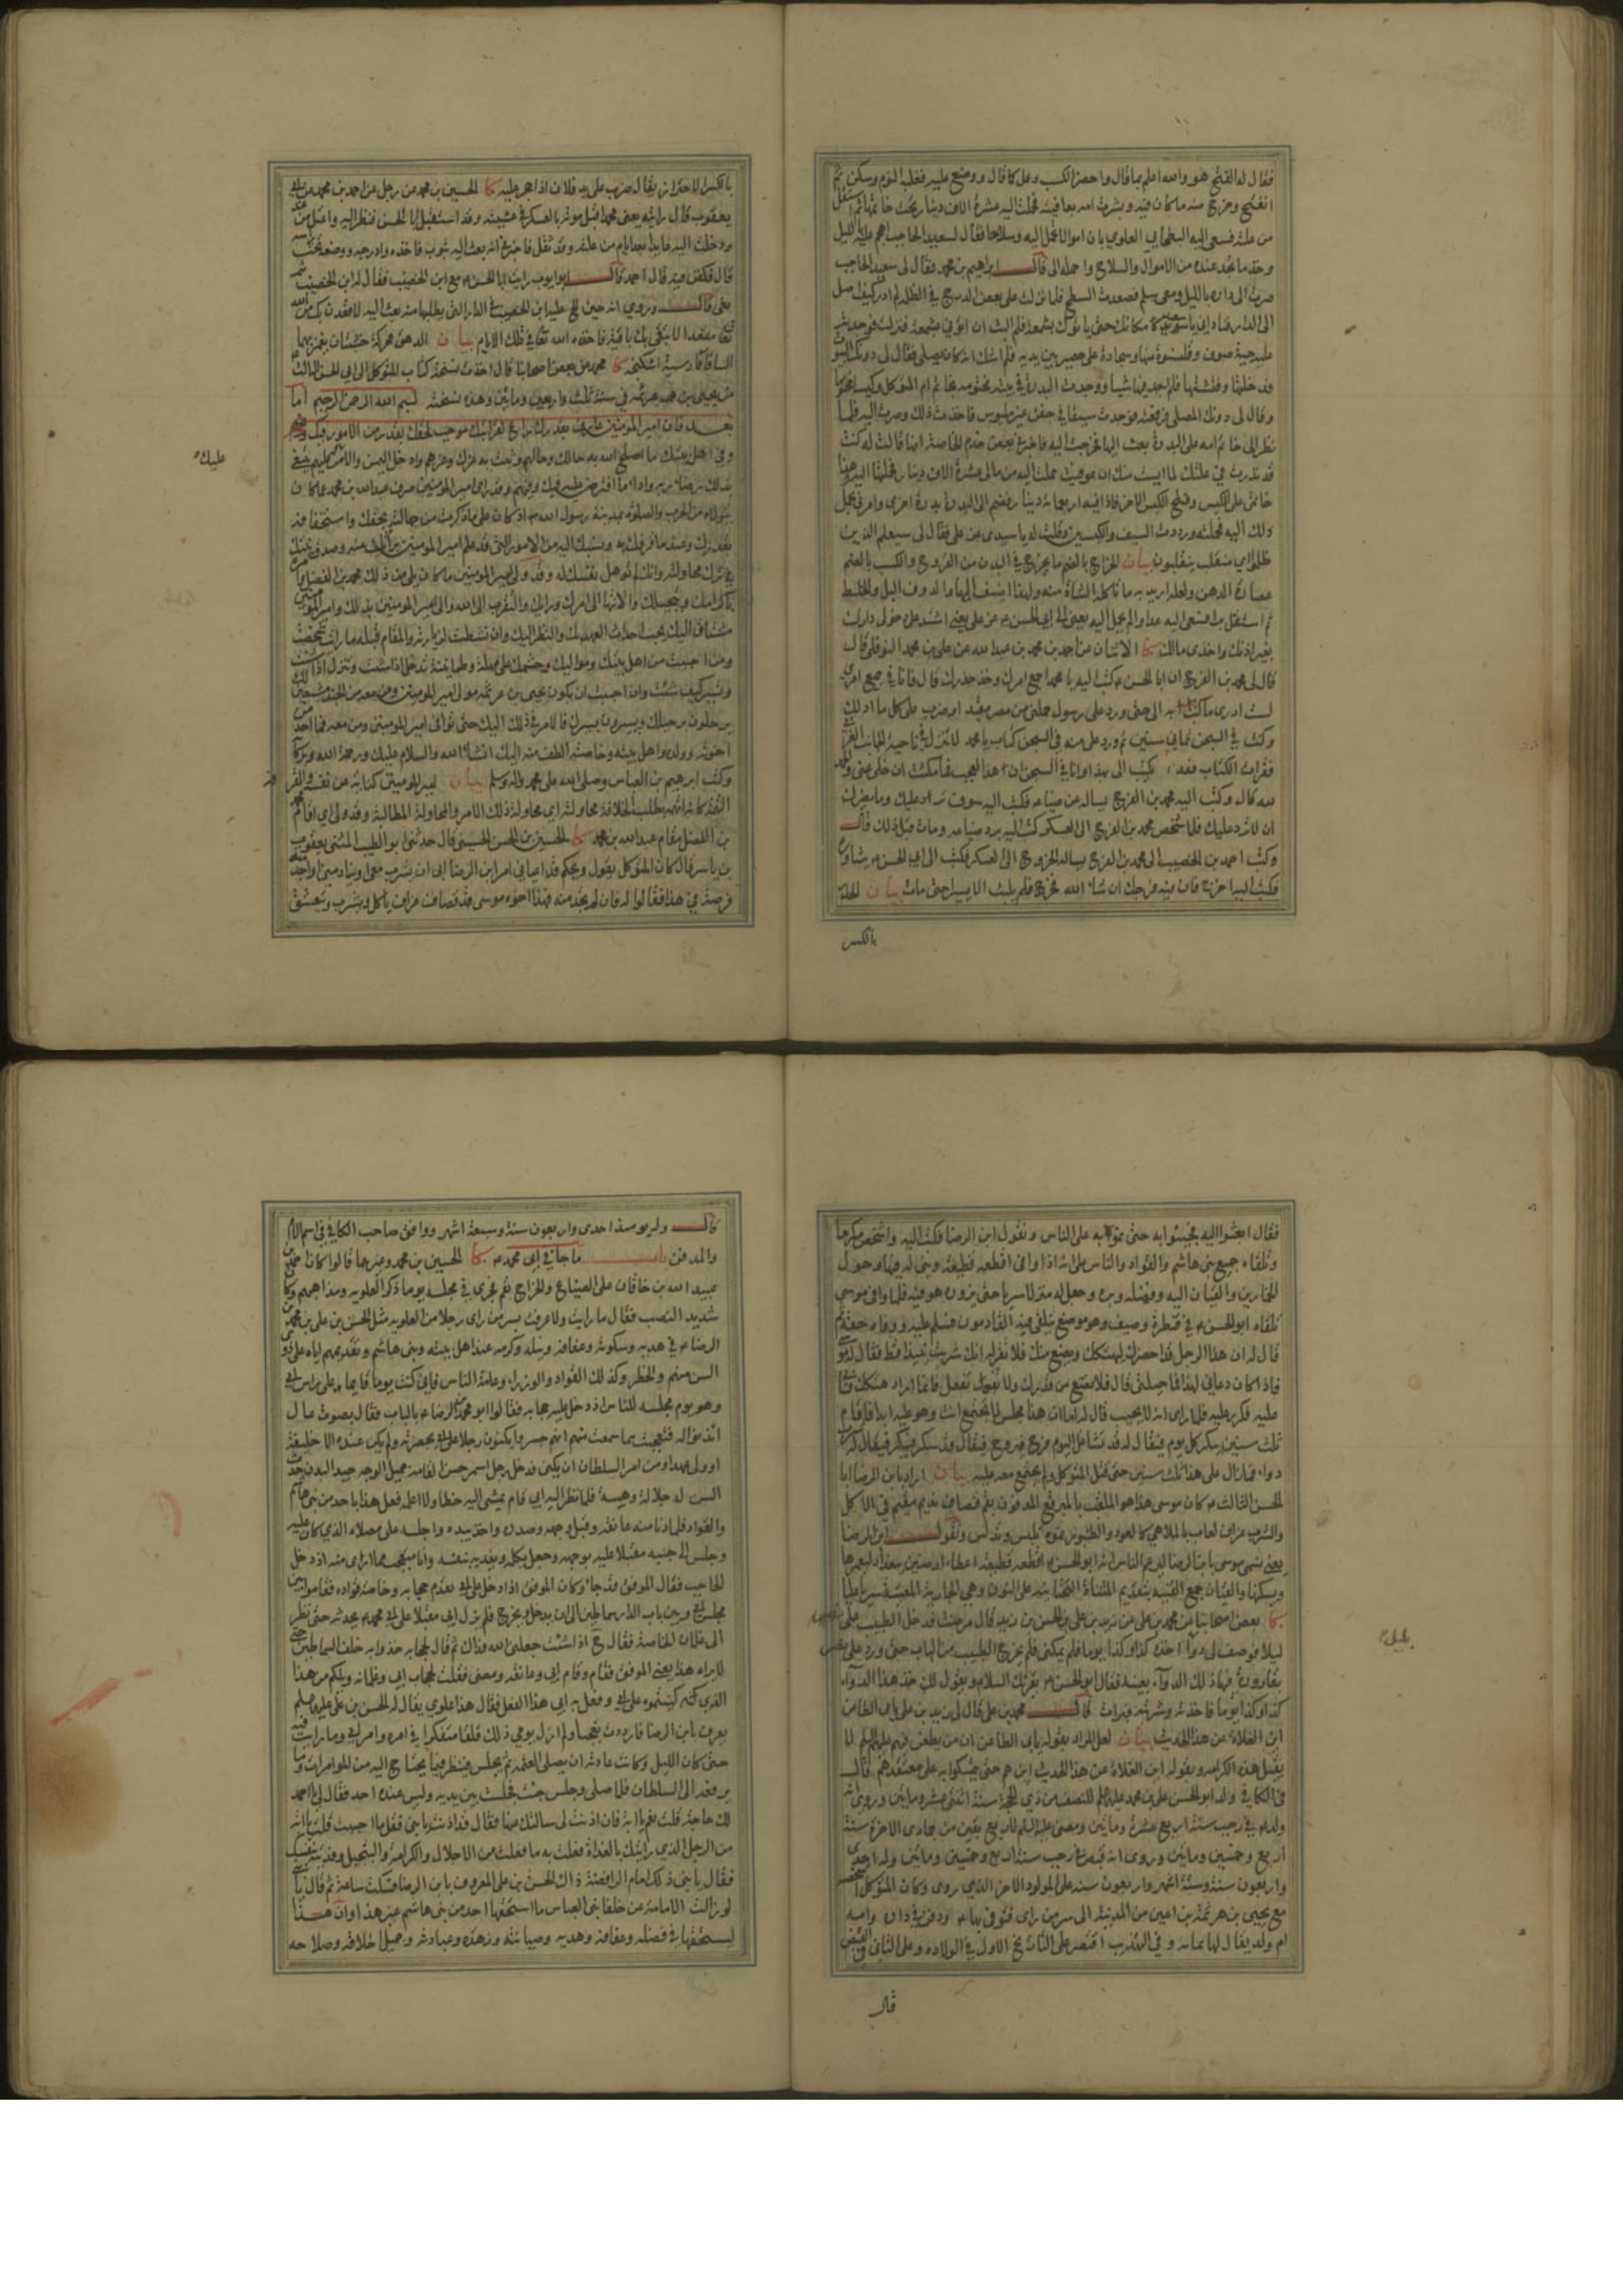 فقال له الفتح هو والله اعلم بما قال واحضر الكسب وعمل كما قال ووضع عليه فغلبه النوم وسكن ثم
انفتح وخرج منه ما كان فيه وبشرت امه بعافيته فحملت اليه عشرة الاف دينار تحت خاتمها ثم استقل
من علته فسعى اليه البطحايي العلوي بان اموالا تحمل اليه وسلاحا فقال لسعيد الحاجب اهجم عليه بالليل
وخذ ما تجد عنده من الاموال والسلاح واحمله الى قال ابراهيم بن محمد فقال لى سعيد الحاجب
صرت الى داره بالليل ومعى سلم فصعدت السطح فلما نزلت على بعض الدرج في الظلمة لم ادر كيف اصل
الى الدار فناداني يا سعيد مكانك حتى ياتوك بشمعة فلم البث ان اتوني بشمعة فنزلت فوجدته
عليه جبة صوف وقلنسوة منها وسجادة على حصير بين يديه فلم اشك انه كان يصلى فقال لى دونك البيوت
فدخلتها وفتشتها فلم اجد فيها شيا ووجدت البدرة في بيته مختومة بخاتم ام المتوكل وكيسا مختوما
وقال لى دونك المصلى فرفعته فوجدت سيفا في جفن غير ملبوس فاخذت ذلك وصرت اليه فلما
نظر الى خاتم امه على البدرة بعث اليها فخرجت اليه فاخبرني بعض خدم الخاصة انها قالت له كنت
قد نذرت في علتك لما ايست منك ان عوفيت حملت اليه من مالى عشرة الاف دينار فحملتها اليه وهذا
خاتمى على الكيس وفتح الكيس الاخر فاذا فيه اربعمائة دينار فضم الى البدرة بدرة اخرى وامرني بحمل
ذلك اليه فحملته ورددت السيف والكيسين وقلت له يا سيدى عز على فقال لى سيعلم الذين
ظلموا اي منقلب ينقلبون بيان الخراج بالضم ما يخرج في البدن من القروح والكسب بالضم
عصارة الدهن ولعله اريد به ما تاكله الشاة منه ولهذا اضيف اليها والدوف البل والخلط
بغير اذنك واخذى مالك كا الاثنان عن احمد بن محمد بن عبدالله عن على بن محمد النوفلى قال
قال لى محمد بن الفرج ان ابا الحسن ع كتب اليه يا محمد اجمع امرك وخذ حذرك قال فانا في جمع امرى
لست ادرى ما كتب به الى حتى ورد على رسول حملنى من مصر مقيدا وضرب على كل ما املك
وكنت في السجن ثماني سنين ثم ورد على منه في السجن كتاب يا محمد لا تنزل في ناحية الجانب الغربي
فقرات الكتاب فقلت يكتب الى بهذا وانا في السجن ان هذا لعجب فما مكثت ان خلى عنى والحمد
لله قال وكتب اليه محمد بن الفرج يساله عن ضياعه فكتب اليه سوف ترد عليك وما يضرك
ان لا ترد عليك فلما شخص محمد بن الفرج الى العسكر كتب اليه برد ضياعه ومات قبل ذلك قال
وكتب احمد بن الخضيب الى محمد بن الفرج يساله الخروج الى العسكر فكتب الى ابي الحسن ع يشاوره
فكتب اليه اخرج فان فيه فرجك ان شاء الله فخرج فلم يلبث الا يسيرا حتى مات بيان
بالكسر
يعقوب قال رايته يعنى محمدا قبل موته بالعسكر في عشية وقد استقبل ابا الحسن فنظر اليه واعتل من غد
ودخلت اليه عايدا بعد ايام من علته وقد ثقل فاخبرني انه بعث اليه بثوب فاخذه وادرجه ووضعه تحت راسه
قال فكفن فيه قال احمد قال ابو يعقوب رايت ابا الحسن ع مع ابن الخضيب فقال له ابن الخضيب سر
من يحيى بن هرثمة في سنة ثلث واربعين ومائتين وهذه نسخته بسم الله الرحمن الرحيم اما
بعد فان امير المؤمنين عارف بقدرك راع لقرابتك موجب لحقك يقدر من الامور فيك
وفي اهل بيتك ما اصلح الله به حالك وحالهم وثبت به عزك وعزهم وادخل اليمن والامن عليهم يبتغى
بذلك رضاء ربه واداء ما افترض عليه فيك وفيهم وقد راى امير المؤمنين صرف عبدالله بن محمد عما كان
يتولاه من الحرب والصلوة بمدينة رسول الله ص اذ كان على ما ذكرت من جهالته بحقك واستخفافه
بقدرك وعندما قرفك به ونسبك اليه من الامور التى قد علم امير المؤمنين براءتك منه وصدق نيتك
في ترك محاولته وانك لم تؤهل نفسك له وقد ولى امير المؤمنين ما كان يلى من ذلك محمد بن الفضل وامره
باكرامك وتبجيلك والانتهاء الى امرك ورايك والتقرب الى الله والى امير المؤمنين بذلك وامير المؤمنين
مشتاق اليك يحب احداث العهد بك والنظر اليك فان نشطت لزيارته والمقام قبله ما رايت شخصت
ومن احببت من اهل بيتك ومواليك وحشمك على مهلة وطمانينة ترحل اذا شئت وتنزل اذا شئت
وتسير كيف شئت وان احببت ان يكون يحيى بن هرثمة مولى امير المؤمنين ومن معه من الجند مشيعين لك
يرحلون برحيلك ويسيرون بسيرك فالامر في ذلك اليك حتى توافى امير المؤمنين
اخوته وولده واهل بيته وخاصته الطف منه اليك انشاء الله والسلام عليك ورحمة الله وبركاته
وكتب ابراهيم بن العباس وصلى الله على محمد واله وسلم بيان
بن الفضل مقام عبدالله بن محمد كا الحسين بن الحسن الحسينى قال حدثنى ابو الطيب المثنى يعقوب
بن ياسر قال كان المتوكل يقول ويحكم قد اعيانى امر ابن الرضا ابى ان يشرب معى او ينادمنى او اجد منه
فرصة في هذا فقالوا له فان لم تجد منه فهذا اخوه موسى قصاف عزاف ياكل ويشرب ويتعشق
عليك
فقال ابعثوا اليه فجيئوا به حتى نموه به على الناس ونقول ابن الرضا فكتب اليه واشخص مكرما
وتلقاه جميع بنى هاشم والقواد والناس على انه اذا وافى اقطعه قطيعة وبنى له فيها وحول
الخمارين والقيان اليه ووصله وبره وجعل له منزلا سريا حتى يزوره هو فيه فلما وافى موسى
تلقاه ابو الحسن ع في قنطرة وصيف وهو موضع يتلقى فيه القادمون فسلم عليه ووفاه حقه ثم
قال له ان هذا الرجل قد احضرك ليهتكك ويضع منك فلا تقر له انك شربت نبيذا قط فقال له موسى
فاذا كان دعانى لهذا فما حيلتى قال فلا تضع من قدرك ولا تفعل فانما اراد هتكك فابى
عليه فكرر عليه فلما راى انه لا يجيب قال له اما ان هذا مجلس لا تجتمع انت وهو عليه ابدا فاقام
ثلث سنين يبكر كل يوم فيقال له قد تشاغل اليوم فرح فيروح فيقال قد سكر فبكر فيبكر فيقال شرب
دواء فما زال على هذا ثلث سنين حتى قتل المتوكل ولم يجتمع معه عليه بيان اراد بابن الرضا ابا
الحسن الثالث ع وكان موسى هذا هو الملقب بالمبرقع المدفون بقم قصاف نديم مقيم في الاكل
والشرب عزاف لعاب بالملاهى كالعود والطنبور نموه نلبس وندلس ونقول ابن الرضا
كا بعض اصحابنا عن محمد بن على عن زيد بن على بن الحسن بن زيد قال مرضت فدخل الطبيب على
ليلا فوصف لى دواء اخذه كذا وكذا يوما فلم يمكنى فلم يخرج الطبيب من الباب حتى ورد على نصر
بقارورة فيها ذلك الدواء بعينه فقال ابو الحسن ع يقرئك السلام ويقول لك خذ هذا الدواء
كذا وكذا يوما فاخذته وشربته فبرات قال محمد بن على قال لى زيد بن على يابى الطاعن
اين الغلاة عن هذا الحديث بيان لعل المراد بقوله يابى الطاعن ان من يطعن فيهم عليهم السلم لا
يقبل هذه الكرامة وبقوله اين الغلاة عن هذا الحديث اين هم حتى يتمسكوا به على معتقدهم قال
في الكافي ولد ابو الحسن على بن محمد عليهما السلم للنصف من ذي الحجة سنة اثنتى عشرة ومائتين وروى انه
ولد ع في رجب سنة اربع عشرة ومائتين ومضى عليه السلم لاربع بقين من جمادى الاخرة سنة
اربع وخمسين ومائتين وروى انه قبض في رجب سنة اربع وخمسين ومائتين وله احدى
واربعون سنة وستة اشهر واربعون سنة على المولود الاخر الذي روى وكان المتوكل اشخصه
مع يحيى بن هرثمة بن اعين من المدينة الى سر من راى فتوفى بها ع ودفن في داره وامه
ام ولد يقال لها سمانه وفي التهذيب اقتصر على التاريخ الاول في الولادة وعلى الثانى في القبض
قال
بليل
قال وله يومئذ احدى واربعون سنة وسبعة اشهر ووافق صاحب الكافي في اسم الام
والمدفن باب ما جاء في ابى محمد ع كا الحسين بن محمد وغيرهما قالوا كان احمد بن
عبيدالله بن خاقان على الضياع والخراج بقم فجرى في مجلسه يوما ذكر العلوية ومذاهبهم وكان
شديد النصب فقال ما رايت ولا عرفت بسر من راى رجلا من العلوية مثل الحسن بن على بن محمد بن
الرضا ع في هديه وسكونه وعفافه ونبله وكرمه عند اهل بيته وبنى هاشم وتقديمهم اياه على ذوى
السن منهم والخطر وكذلك القواد والوزراء وعامة الناس فانى كنت يوما قايما على راس ابى
وهو يوم مجلسه للناس اذ دخل عليه حجابه فقالوا ابو محمد بن الرضا ع بالباب فقال بصوت عال
ائذنوا له فتعجبت مما سمعت منهم انهم جسروا يكنون رجلا على ابى بحضرته ولم يكن عنده الا خليفة
او ولى عهد او من امر السلطان ان يكنى فدخل رجل اسمر حسن القامة جميل الوجه جيد البدن حدث
السن له جلالة وهيبة فلما نظر اليه ابي قام يمشى اليه خطا ولا اعلمه فعل هذا باحد من بنى هاشم
والقواد فلما دنا منه عانقه وقبل وجهه وصدره واخذ بيده واجلسه على مصلاه الذي كان عليه
وجلس الى جنبه مقبلا عليه بوجهه وجعل يكلمه ويفديه بنفسه وانا متعجب مما ارى منه اذ دخل
الحاجب فقال الموفق قد جاء وكان الموفق اذا دخل على ابى تقدم حجابه وخاصة قواده فقاموا بين
مجلس ابى وبين باب الدار سماطين الى ان يدخل ويخرج فلم يزل ابى مقبلا على ابى محمد ع يحدثه حتى نظر
الى غلمان الخاصة فقال ح اذا شئت جعلنى الله فداك ثم قال لحجابه خذوا به خلف السماطين حتى
لا يراه هذا يعنى الموفق فقام وقام ابى وعانقه ومضى فقلت لحجاب ابى وغلمانه ويلكم من هذا
الذى كنيتموه على ابى وفعل به ابى هذا الفعل فقال هذا علوي يقال له الحسن بن على عليهما السلم
يعرف بابن الرضا فازددت تعجبا ولم ازل يومي ذلك قلقا متفكرا في امره وامر ابى وما رايت فيه
حتى كان الليل وكانت عادته ان يصلى العتمة ثم يجلس فينظر فيما يحتاج اليه من الموامرات وما
يرفعه الى السلطان فلما صلى وجلس جئت فجلست بين يديه وليس عنده احد فقال لى يا احمد
لك حاجة قلت نعم يا ابه فان اذنت لى سالتك عنها فقال قد اذنت يا بنى فقل ما احببت قلت يا ابه
من الرجل الذي رايتك بالغداة فعلت به ما فعلت من الاجلال والكرامة والتبجيل وفديته بنفسك
فقال يا بنى ذلك امام الرافضة ذاك الحسن بن على المعروف بابن الرضا فسكت ساعة ثم قال يا بنى
لو زالت الامامة عن خلفا بنى العباس ما استحقها احد من بنى هاشم غير هذا وان هذا
ليستحقها في فضله وعفافه وهديه وصيانته وزهده وعبادته وجميل اخلاقه وصلاحه